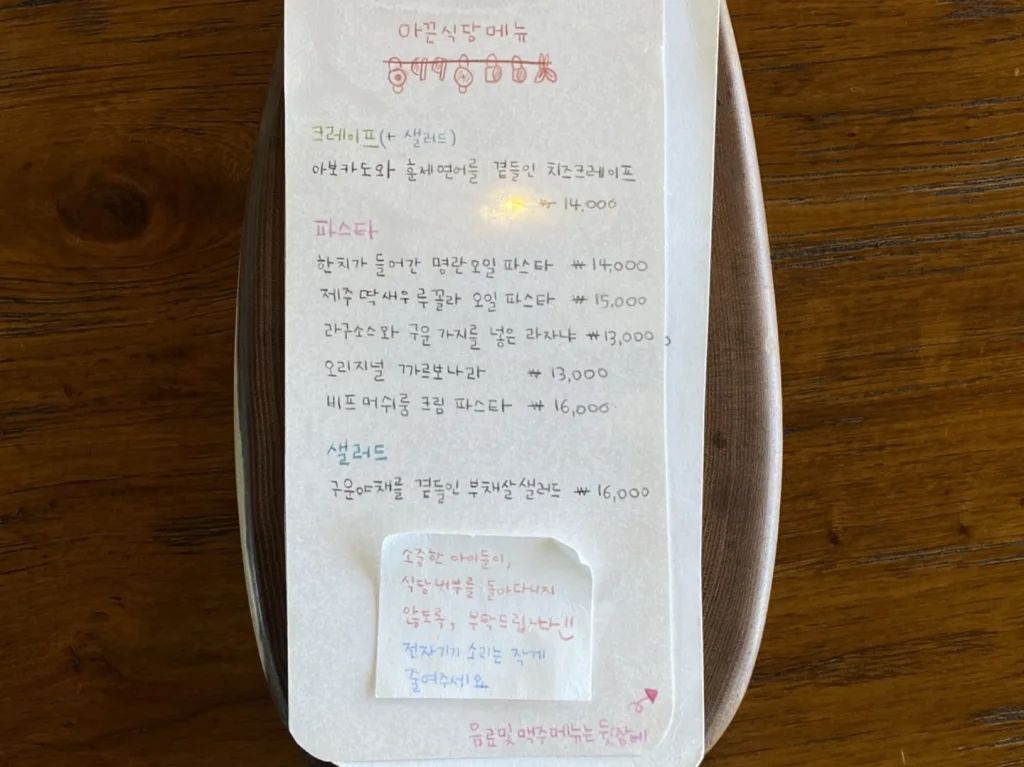 아끈식당 메뉴
크레이프(+ 샐러드)
아보카도와 훈제연어를 곁들인 치즈크레이프
₩ 14,000
파스타
한치가 들어간 명란오일 파스타 ₩ 14,000
제주 딱새우 루꼴라 오일 파스타 ₩ 15,000
라구소스와 구운 가지를 넣은 라자냐 ₩ 13,000
오리지널 까르보나라 ₩ 13,000
비프 머쉬룸 크림 파스타 ₩ 16,000
샐러드
구운야채를 곁들인 부채살 샐러드 ₩ 16,000
소중한 아이들이,
식당 내부를 돌아다니지
않도록, 부탁드립니다!!
전자기기 소리는 작게
줄여주세요
음료 및 맥주 메뉴는 뒷장에